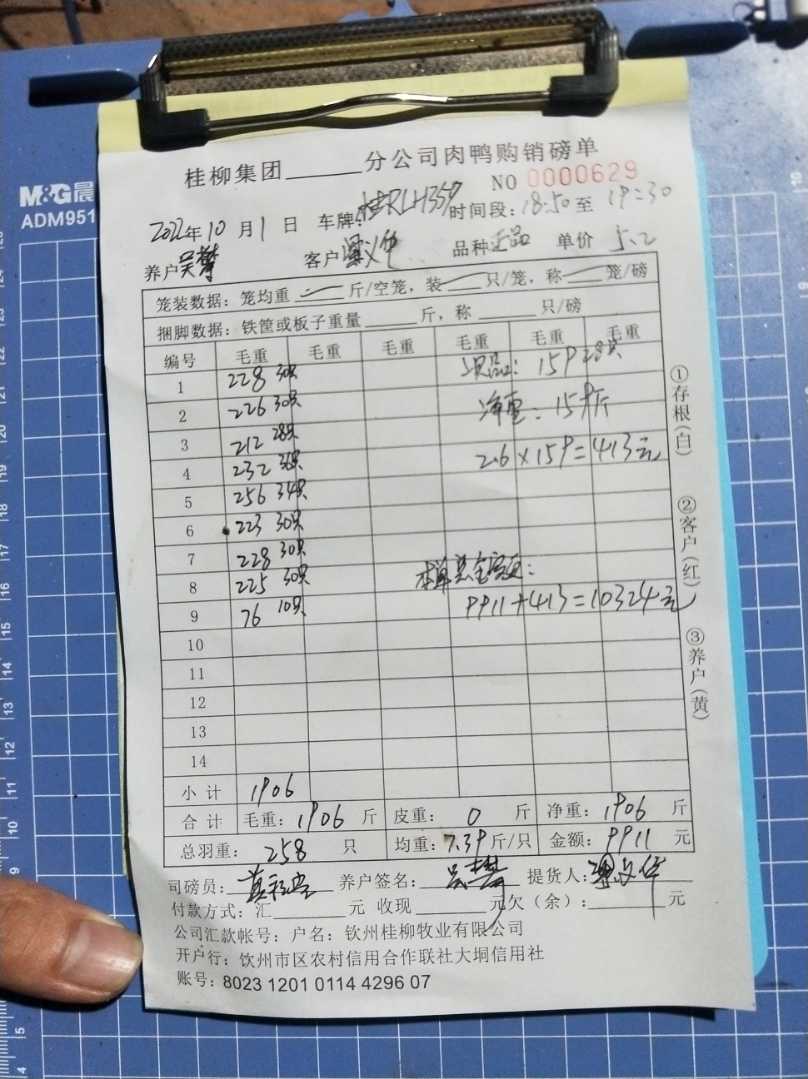 M&G 晨
ADM951
桂柳集团______分公司肉鸭购销磅单
NO 0000629
2022年10月1日 车牌: 时间段:18:50至19:30
养户 吴 客户 品种 正品 单价 5.2
笼装数据:笼均重______斤/空笼,装______只/笼,称______笼/磅
捆脚数据:铁筐或板子重量______斤,称______只/磅
编号 毛重 毛重 毛重 毛重 毛重 毛重
1 228 30只 次品:159 28只
2 226 30只 净重:159斤
3 212 28只 2.6×159=413元
4 232 36只
5 256 34只
6 223 30只
7 228 30只
8 225 30只 本单总金额:
9 76 10只 9911+413=10324元
10
11
12
13
14
小计 1906
合计 毛重:1906斤 皮重:0斤 净重:1906斤
总羽重:258只 均重:7.39斤/只 金额:9911元
司磅员: 养户签名:吴 提货人:
付款方式:汇______元 收现______元欠(余):______元
公司汇款帐号:户名:钦州桂柳牧业有限公司
开户行:钦州市区农村信用合作联社大垌信用社
账号:8023 1201 0114 4296 07
①存根(白)
②客户(红)
③养户(黄)